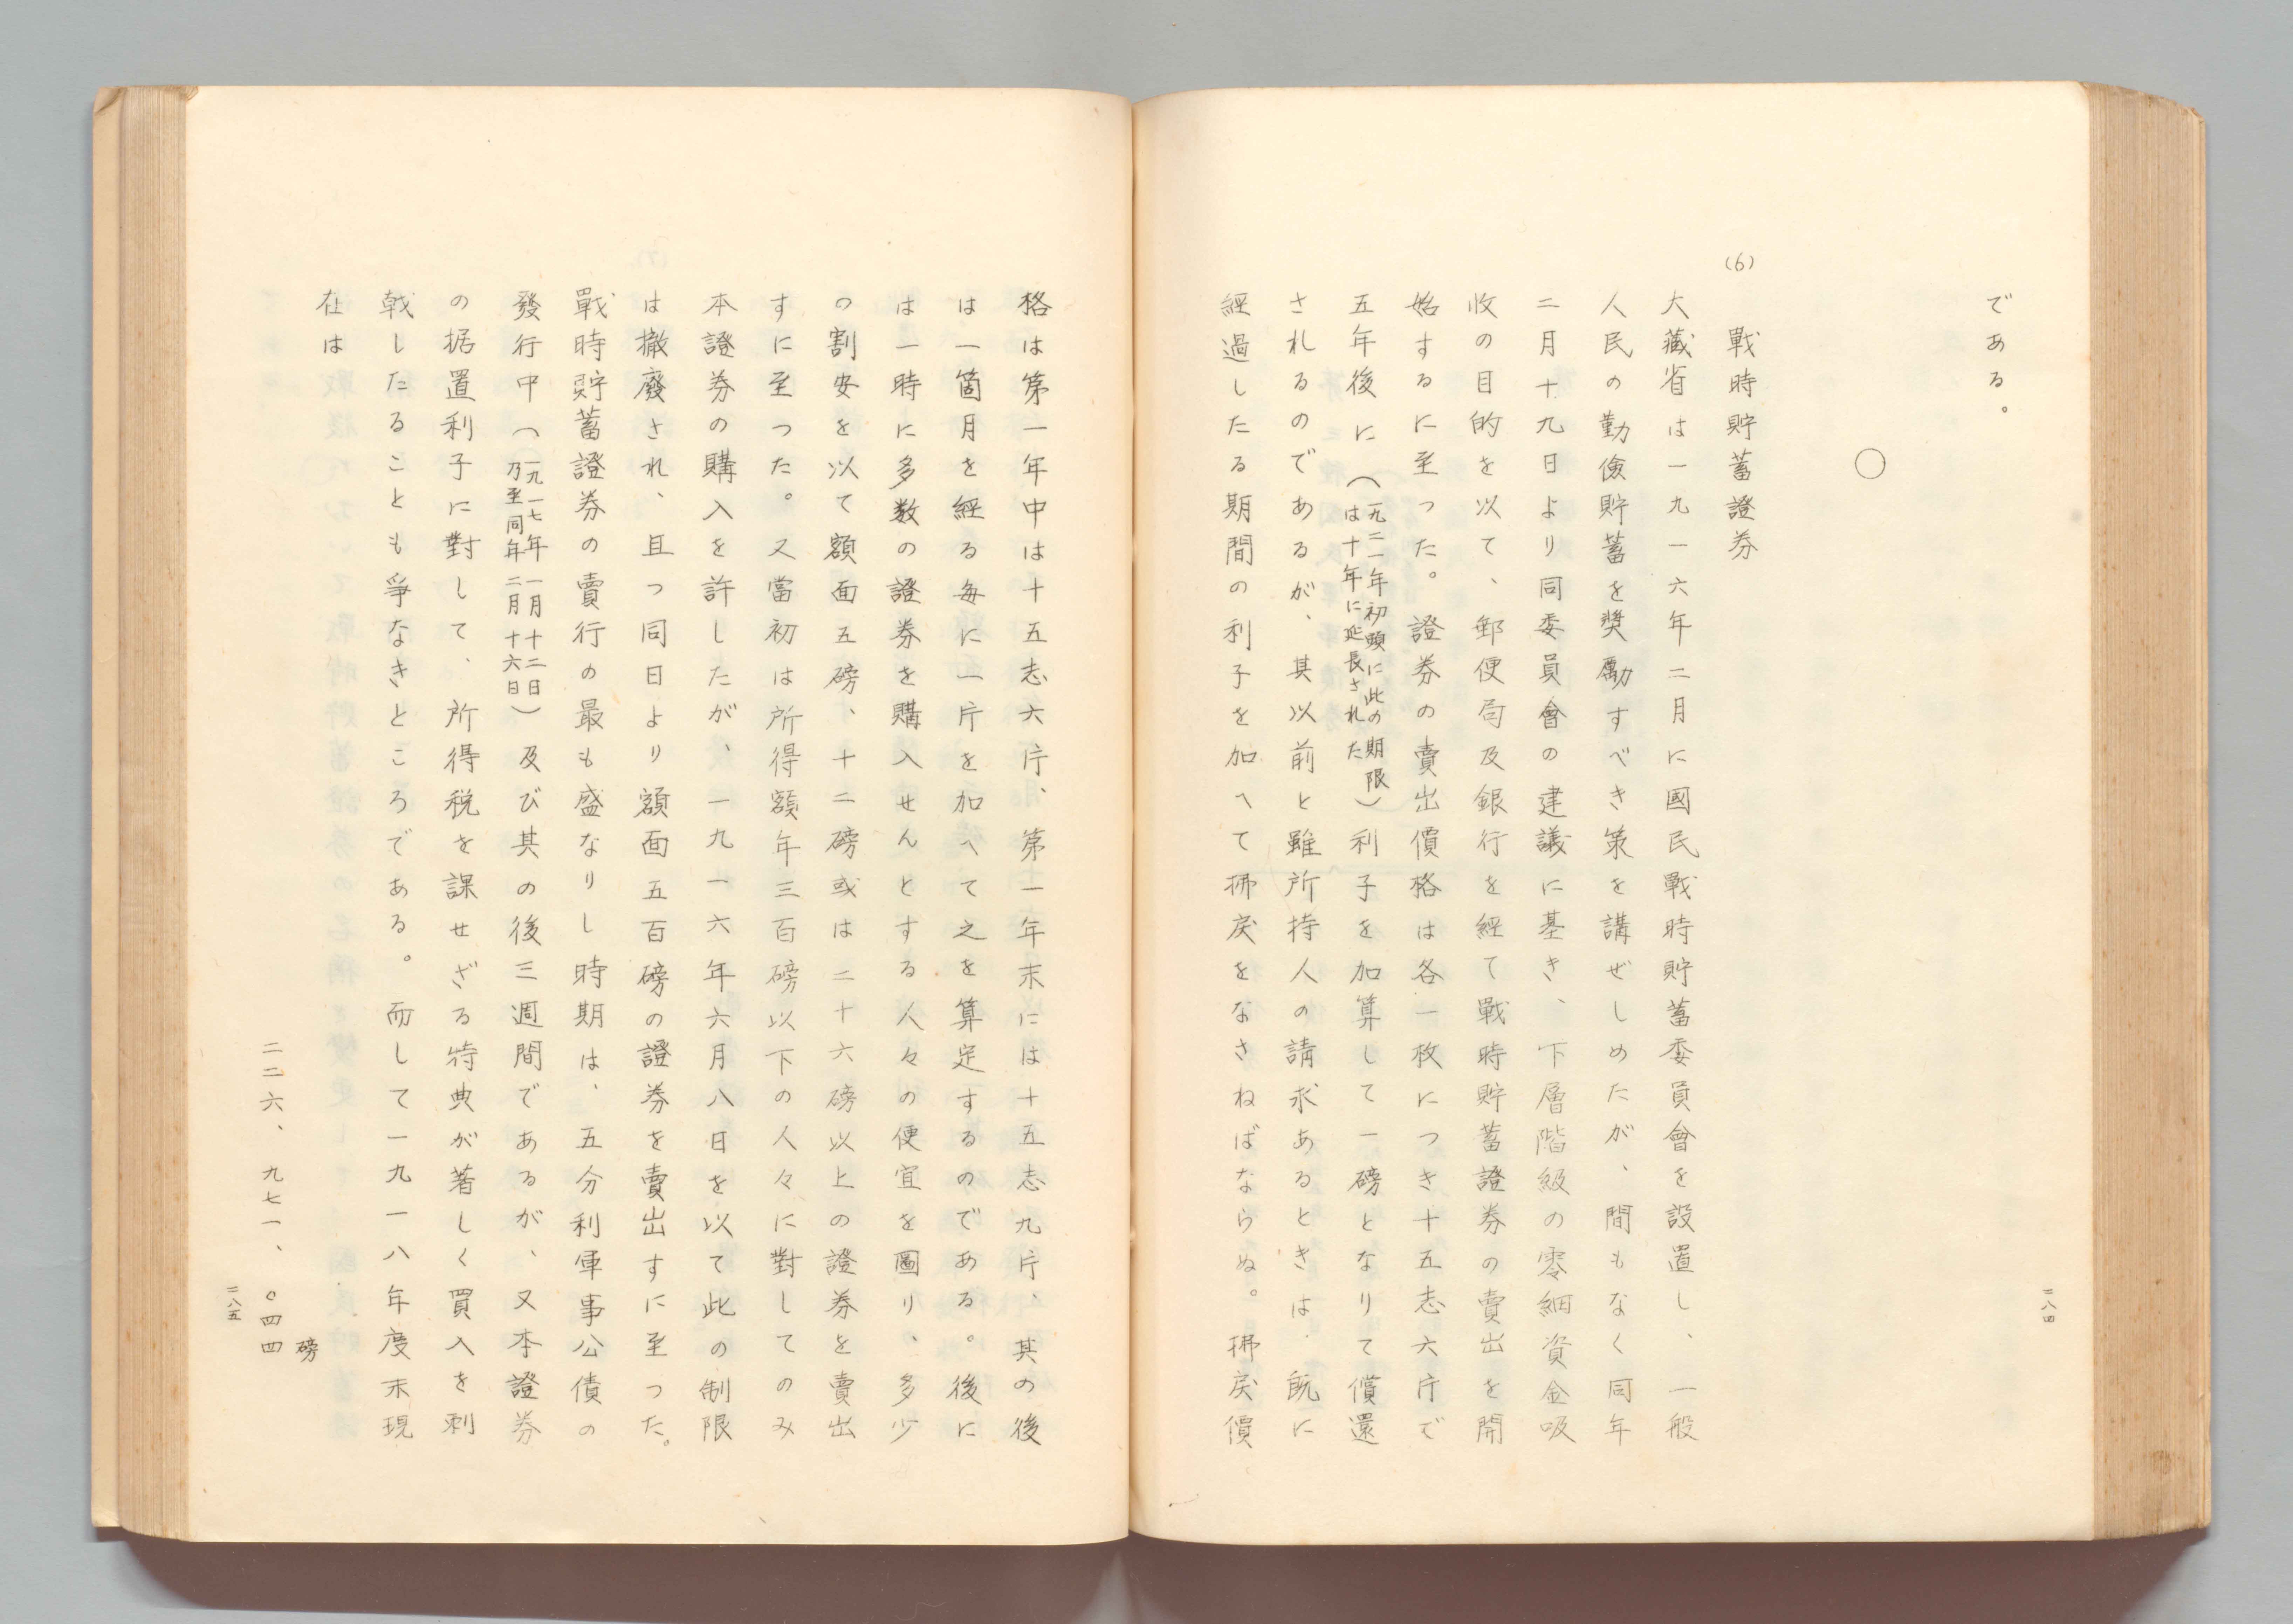 である。
○
(6) 戰時貯蓄證券
大藏省は一九一六年二月に國民戰時貯蓄委員會を設置し、一般
人民の勤儉貯蓄を奬勵すべき策を講ぜしめたが、間もなく同年
二月十九日より同委員會の建議に基き、下層階級の零細資金吸
收の目的を以て、郵便局及銀行を經て戰時貯蓄證券の賣出を開
始するに至った。證券の賣出價格は各一枚につき十五志六片で
五年後に(一九二一年初頭に此の期限は十年に延長された)利子を加算して一磅となりて償還
されるのであるが、其以前と雖所持人の請求あるときは、既に
經過したる期間の利子を加へて拂戾をなさねばならぬ。拂戾價
二八四
格は第一年中は十五志六片、第一年末には十五志九片、其の後
は一箇月を經る每に一片を加へて之を算定するのである。後に
は一時に多数の證券を購入せんとする人々の便宜を圖り、多少
の割安を以て額面五磅、十二磅或は二十六磅以上の證券を賣出
すに至った。又當初は所得額年三百磅以下の人々に對してのみ
本證券の購入を許したが、一九一六年六月八日を以て此の制限
は撤廢され、且つ同日より額面五百磅の證券を賣出すに至った。
戰時貯蓄證券の賣行の最も盛なりし時期は、五分利軍事公債の
發行中(一九一七年一月十二日乃至同年二月十六日)及び其の後三週間であるが、又本證券
の据置利子に對して、所得稅を課せざる特典が著しく買入を刺
戟したることも爭なきところである。而して一九一八年度末現
在は
磅
二二六、九七一、〇四四
二八五